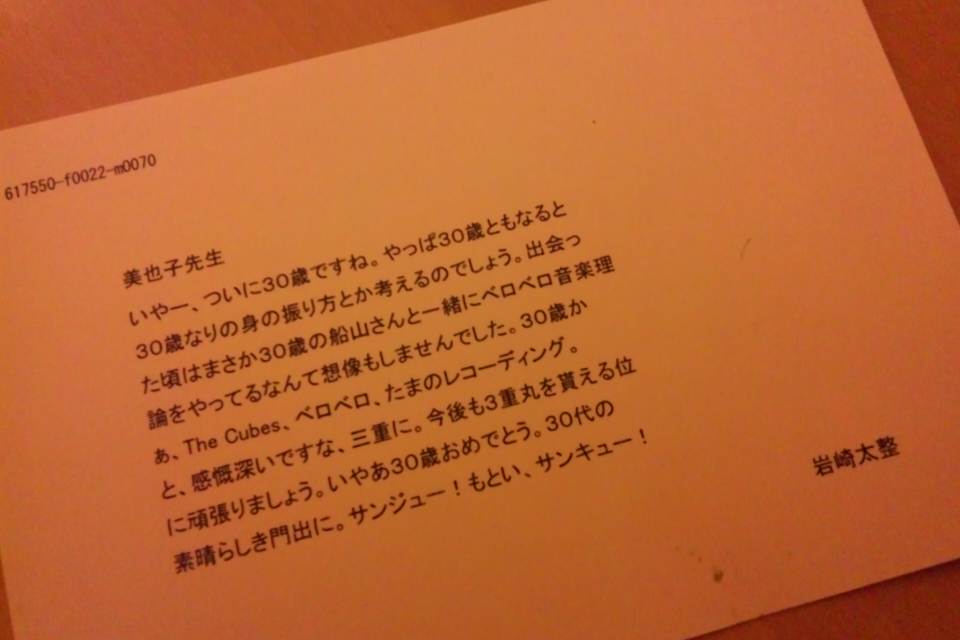 617550-f0022-m0070
美也子先生
いやー、ついに30歳ですね。やっぱ30歳ともなると
30歳なりの身の振り方とか考えるのでしょう。出会っ
た頃はまさか30歳の船山さんと一緒にベロベロ音楽理
論をやってるなんて想像もしませんでした。30歳か
ぁ、The Cubes、ベロベロ、たまのレコーディング。
と、感慨深いですな、三重に。今後も3重丸を貰える位
に頑張りましょう。いやあ30歳おめでとう。30代の
素晴らしき門出に。サンジュー！もとい、サンキュー！
岩崎太整